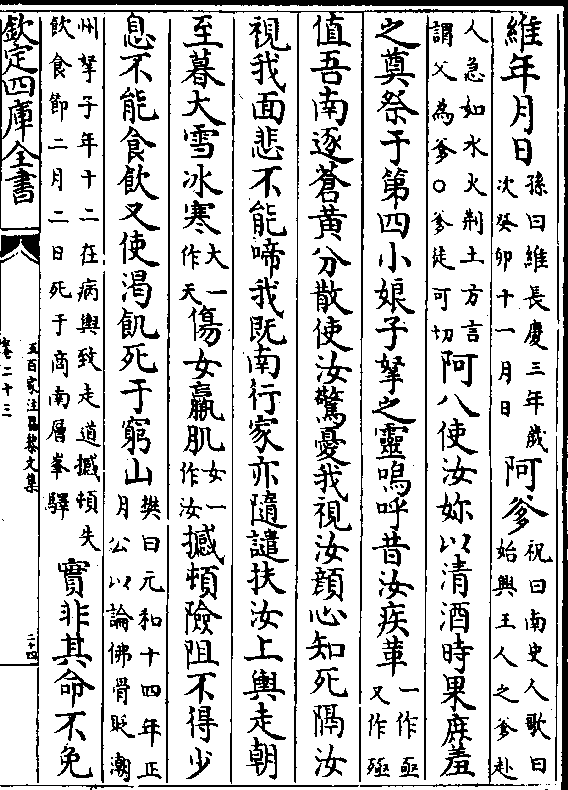 維年月日孫曰維長慶三年歲次癸卯十一月日阿爹祝曰南史人歌曰始興王人之爹赴
人急如水火荆土方言謂父為爹○爹徒可切阿八使汝妳以清酒時果庶羞
之奠祭于第四小娘子挐之靈嗚呼昔汝疾革一作亟又作殛
值吾南逐蒼黄分散使汝驚憂我視汝顔心知死隔汝
視我面悲不能啼我既南行家亦隨譴扶汝上輿走朝
至暮大雪冰寒大一作天傷女羸肌女一作汝撼頓險阻不得少
息不能食飲又使渴飢死于窮山樊曰元和十四年正月公以論佛骨貶潮
州挐子年十二在病輿致走道撼頓失飲食節二月二日死于商南層峯驛實非其命不免
欽定四庫全書
五百家注昌黎文集
卷二十三
二十四